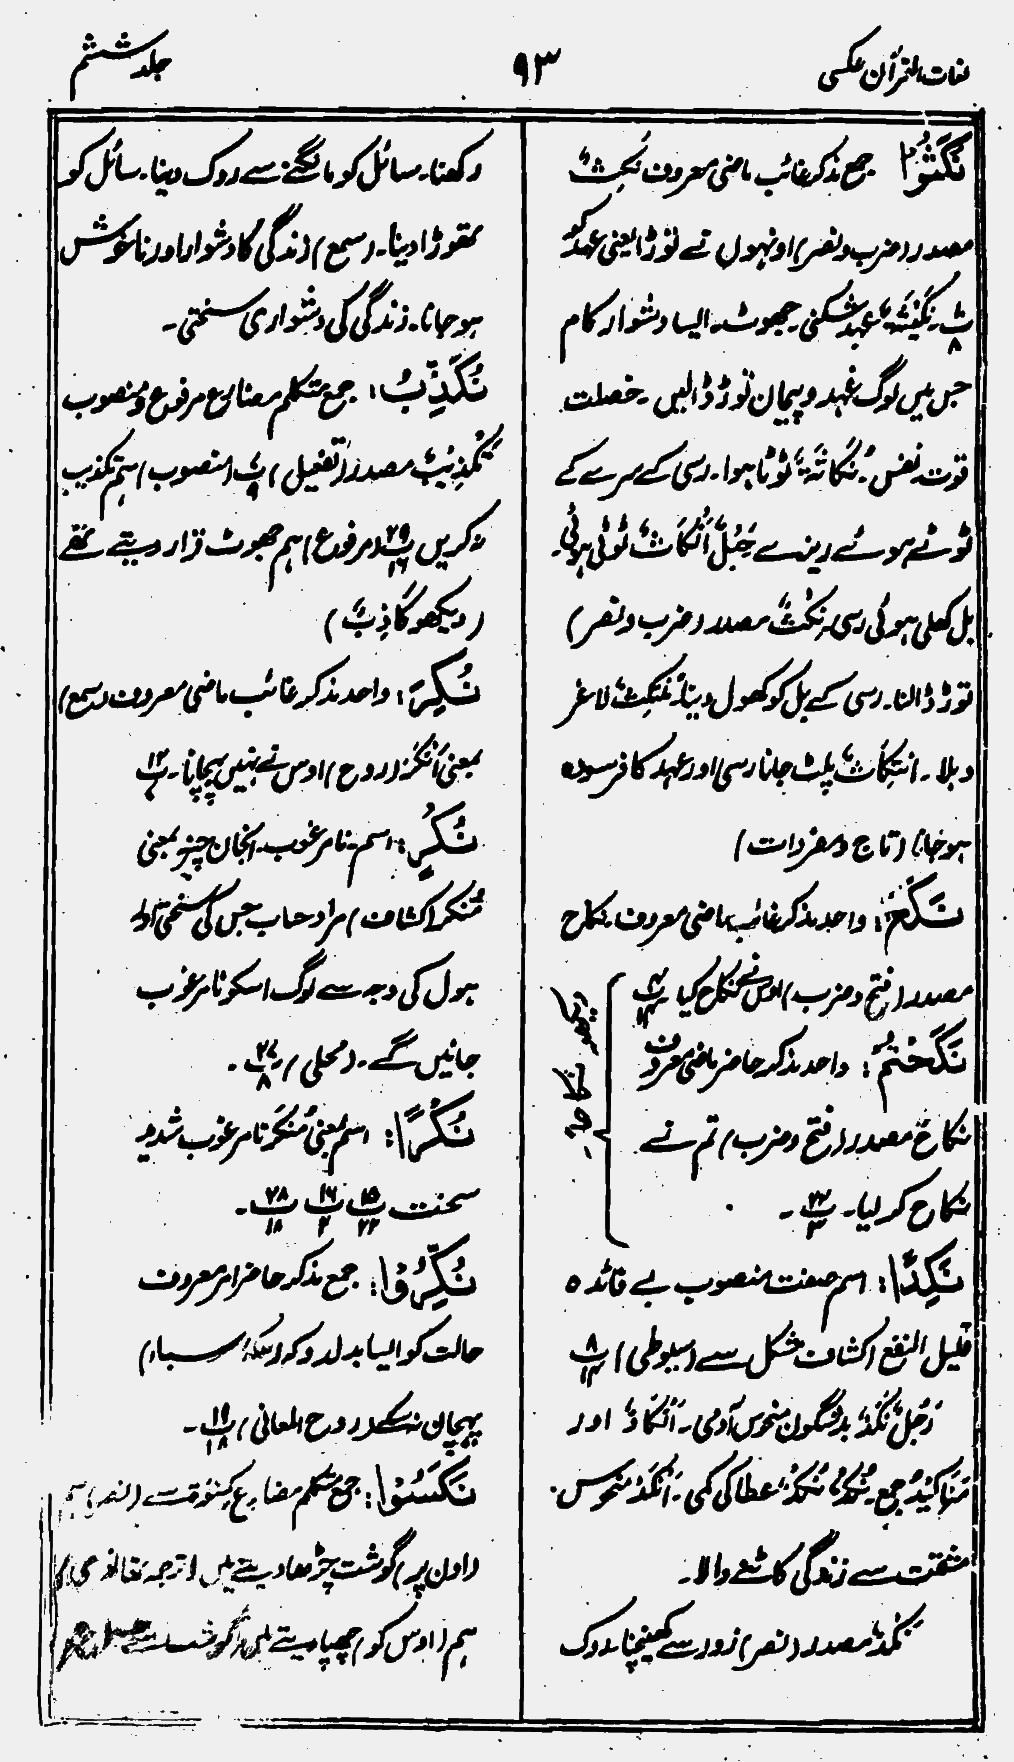 لغات القرآن عکسی
۹۳
جلد ششم
نَکَثُوْا جمع مذکر غائب ماضی معروف نَکْثٌ
مصدر (ضرب و نصر) اونہوں نے توڑا یعنی عہد کو
پ ۸ نَکِیْثَۃٌ عہد شکنی۔ جھوٹ۔ ایسا دشوار کام
جس میں لوگ عہد و پیمان توڑ ڈالیں۔ خصلت
قوت نفس۔ نُکَاثَۃٌ ٹوٹا ہوا۔ رسی کے سرے کے
ٹوٹے ہوئے ریزے حَبْلٌ اَنْکَاثٌ ٹوٹی ہوئی۔
بل کھلی ہوئی رسی۔ نَکْثٌ مصدر (ضرب و نصر)
توڑ ڈالنا۔ رسی کے بل کو کھول دینا۔ مُنْتَکِثٌ لاغر
دبلا۔ اِنْتِکَاثٌ پلٹ جانا رسی اور عہد کا فرسودہ
ہو جانا (تاج و مفردات)
نَکَحَ: واحد مذکر غائب ماضی معروف۔ نکاح
مصدر (فتح و ضرب) اوس نے نکاح کیا پ ۴ ۱۴
نَکَحْتُمْ: واحد مذکر حاضر ماضی معروف
نکاحٌ مصدر (فتح و ضرب) تم نے
نکاح کر لیا۔ پ ۲۲ ۳ ۔
دیکھو نکاح۔
نَکِدًا: اسم صفت منصوب بے فائدہ
قلیل النفع (کشاف) مشکل سے (سیوطی) پ ۸ ۱۴
رَجُلٌ نَکِدٌ بدشگون منحوس آدمی۔ اَنْکَادٌ اور
مَنَاکِیْدُ جمع۔ نُکْدٌ نُکُدٌ عطا کی کمی۔ اَنْکَدُ منحوس۔
مشقت سے زندگی کاٹنے والا۔
نَکْدٌ مصدر (نصر) زور سے کھینچنا۔ روک
رکھنا۔ سائل کو مانگنے سے روک دینا۔ سائل کو
تھوڑا دینا۔ (سمع) زندگی کا دشوار اور ناخوش
ہو جانا۔ زندگی کی دشواری سختی۔
نُکَذِّبُ: جمع متکلم مضارع مرفوع و منصوب
تَکْذِیْبٌ مصدر (تفعیل) پ ۹ (منصوب) ہم تکذیب
نہ کریں پ ۲۹ ۱۶ (مرفوع) ہم جھوٹ قرار دیتے تھے
(دیکھو کَاذِبٌ)
نَکِرَ: واحد مذکر غائب ماضی معروف (سمع)
بمعنی اَنْکَرَ (روح) اوس نے نہیں پہچانا۔ پ ۱۲
نُکُرٍ: اسم۔ نامرغوب۔ انجان چیز بمعنی
مُنْکَر (کشاف) مراد حساب جس کی سختی اور
ہول کی وجہ سے لوگ اسکو نامرغوب
جانیں گے۔ (محلی) پ ۲۷ ۸ ۔
نُکْرًا: اسم بمعنی مُنْکَر نامرغوب شدید
سخت پ ۱۵ ۲۲ پ ۱۶ ۲ پ ۲۸ ۱۸ ۔
نَکِّرُوْا: جمع مذکر حاضر امر معروف
حالت کو ایسا بدل دو کہ
پہچان نہ سکے (روح المعانی) پ ۱۹ ۱۸ ۔
نَکْسُوْا: جمع متکلم مضارع کِسْوَۃ سے (نصر) ہم
(اون پر) گوشت چڑھا دیتے ہیں (ترجمہ تھانوی)
ہم (اوس کو) چھپا دیتے ہیں